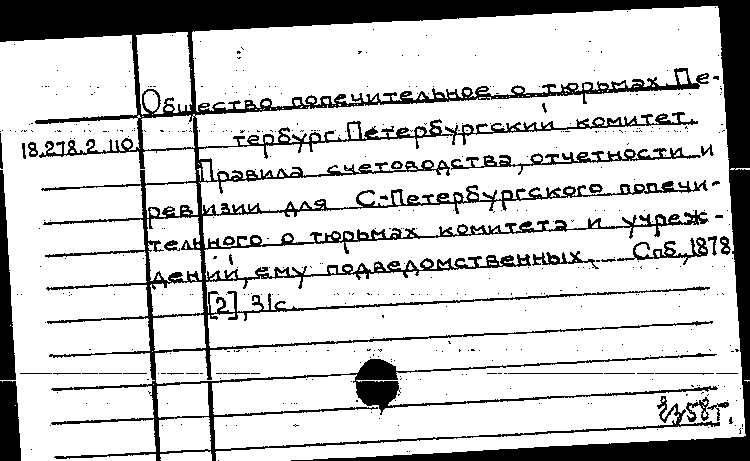 Общество попечительное о тюрьмах. Пе-
18.278.2.110. тербург. Петербургский комитет.
Правила счетоводства, отчетности и
ревизии для С.-Петербургского попечи-
тельного о тюрьмах комитета и учреж-
дений, ему подведомственных. Спб., 1878.
[2], 31с.